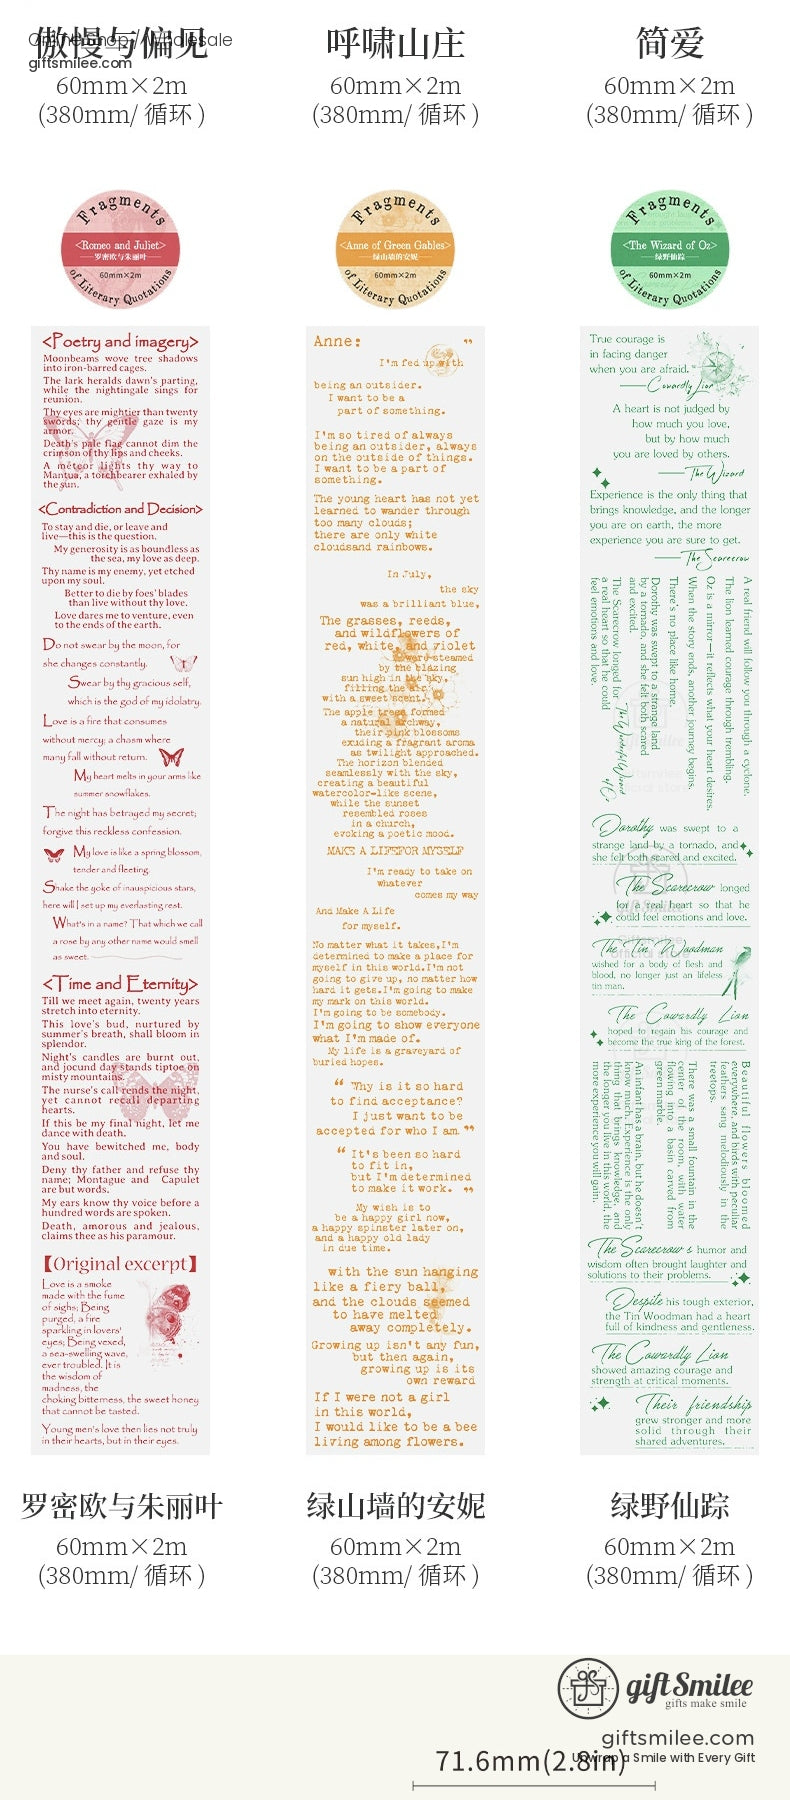 傲慢与偏见
Online Shop / Wholesale
giftsmilee.com
60mm×2m
(380mm/ 循环 )
呼啸山庄
60mm×2m
(380mm/ 循环 )
简爱
60mm×2m
(380mm/ 循环 )
Fragments
<Romeo and Juliet>
罗密欧与朱丽叶
60mm×2m
of Literary Quotations
Fragments
<Anne of Green Gables>
绿山墙的安妮
60mm×2m
of Literary Quotations
Fragments
<The Wizard of Oz>
绿野仙踪
60mm×2m
of Literary Quotations
<Poetry and imagery>
Moonbeams wove tree shadows
into iron-barred cages.
The lark heralds dawn's parting,
while the nightingale sings for
reunion.
Thy eyes are mightier than twenty
swords; thy gentle gaze is my
armor.
Death's pale flag cannot dim the
crimson of thy lips and cheeks.
A meteor lights thy way to
Mantua, a torchbearer exhaled by
the sun.
<Contradiction and Decision>
To stay and die, or leave and
live—this is the question.
My generosity is as boundless as
the sea, my love as deep.
Thy name is my enemy, yet etched
upon my soul.
Better to die by foes' blades
than live without thy love.
Love dares me to venture, even
to the ends of the earth.
Do not swear by the moon, for
she changes constantly.
Swear by thy gracious self,
which is the god of my idolatry.
Love is a fire that consumes
without mercy; a chasm where
many fall without return.
My heart melts in your arms like
summer snowflakes.
The night has betrayed my secret;
forgive this reckless confession.
My love is like a spring blossom,
tender and fleeting.
Shake the yoke of inauspicious stars,
here will I set up my everlasting rest.
What's in a name? That which we call
a rose by any other name would smell
as sweet.
<Time and Eternity>
Till we meet again, twenty years
stretch into eternity.
This love's bud, nurtured by
summer's breath, shall bloom in
splendor.
Night's candles are burnt out,
and jocund day stands tiptoe on
misty mountains.
The nurse's call rends the night,
yet cannot recall departing
hearts.
If this be my final night, let me
dance with death.
You have bewitched me, body
and soul.
Deny thy father and refuse thy
name; Montague and Capulet
are but words.
My ears know thy voice before a
hundred words are spoken.
Death, amorous and jealous,
claims thee as his paramour.
【Original excerpt】
Love is a smoke
made with the fume
of sighs; Being
purged, a fire
sparkling in lovers'
eyes; Being vexed,
a sea-swelling wave,
ever troubled. It is
the wisdom of
madness, the
choking bitterness, the sweet honey
that cannot be tasted.
Young men's love then lies not truly
in their hearts, but in their eyes.
Anne: ”
I'm fed up with
being an outsider.
I want to be a
part of something.
I'm so tired of always
being an outsider, always
on the outside of things.
I want to be a part of
something.
The young heart has not yet
learned to wander through
too many clouds;
there are only white
cloudsand rainbows.
In July,
the sky
was a brilliant blue,
The grasses, reeds,
and wildflowers of
red, white, and violet
were steamed
by the blazing
sun high in the sky,
filling the air
with a sweet scent.
The apple trees formed
a natural archway,
their pink blossoms
exuding a fragrant aroma
as twilight approached.
The horizon blended
seamlessly with the sky,
creating a beautiful
watercolor-like scene,
while the sunset
resembled roses
in a church,
evoking a poetic mood.
MAKE A LIFEFOR MYSELF
I'm ready to take on
whatever
comes my way
And Make A Life
for myself.
No matter what it takes,I'm
determined to make a place for
myself in this world.I'm not
going to give up, no matter how
hard it gets.I'm going to make
my mark on this world.
I'm going to be somebody.
I'm going to show everyone
what I'm made of.
My life is a graveyard of
buried hopes.
“ Why is it so hard
to find acceptance?
I just want to be
accepted for who I am ”
“ It's been so hard
to fit in,
but I'm determined
to make it work. ”
My wish is to
be a happy girl now,
a happy spinster later on,
and a happy old lady
in due time.
with the sun hanging
like a fiery ball,
and the clouds seemed
to have melted
away completely.
Growing up isn't any fun,
but then again,
growing up is its
own reward
If I were not a girl
in this world,
I would like to be a bee
living among flowers.
True courage is
in facing danger
when you are afraid."
—Cowardly Lion
A heart is not judged by
how much you love,
but by how much
you are loved by others.
—The Wizard
Experience is the only thing that
brings knowledge, and the longer
you are on earth, the more
experience you are sure to get.
—The Scarecrow
A real friend will follow you through a cyclone.
The lion learned courage through trembling.
Oz is a mirror—it reflects what your heart desires.
When the story ends, another journey begins.
There's no place like home.
Dorothy was swept to a strange land
by a tornado, and she felt both scared
and excited.
The Scarecrow longed for
a real heart so that he could
feel emotions and love.
The Wonderful Wizard
of Oz
Dorothy was swept to a
strange land by a tornado, and
she felt both scared and excited.
The Scarecrow longed
for a real heart so that he
could feel emotions and love.
The Tin Woodman
wished for a body of flesh and
blood, no longer just an lifeless
tin man.
The Cowardly Lion
hoped to regain his courage and
become the true king of the forest.
Beautiful flowers bloomed
everywhere, and birds with peculiar
feathers sang melodiously in the
treetops.
There was a small fountain in the
center of the room, with water
flowing into a basin carved from
green marble.
An infant has a brain, but he doesn't
know much. Experience is the only
thing that brings knowledge, and
the longer you live in this world, the
more experience you will gain.
The Scarecrow's humor and
wisdom often brought laughter and
solutions to their problems.
Despite his tough exterior,
the Tin Woodman had a heart
full of kindness and gentleness.
The Cowardly Lion
showed amazing courage and
strength at critical moments.
Their friendship
grew stronger and more
solid through their
shared adventures.
罗密欧与朱丽叶
60mm×2m
(380mm/ 循环 )
绿山墙的安妮
60mm×2m
(380mm/ 循环 )
绿野仙踪
60mm×2m
(380mm/ 循环 )
giftSmilee
gifts make smile
giftsmilee.com
Unwrap a Smile with Every Gift
71.6mm(2.8in)